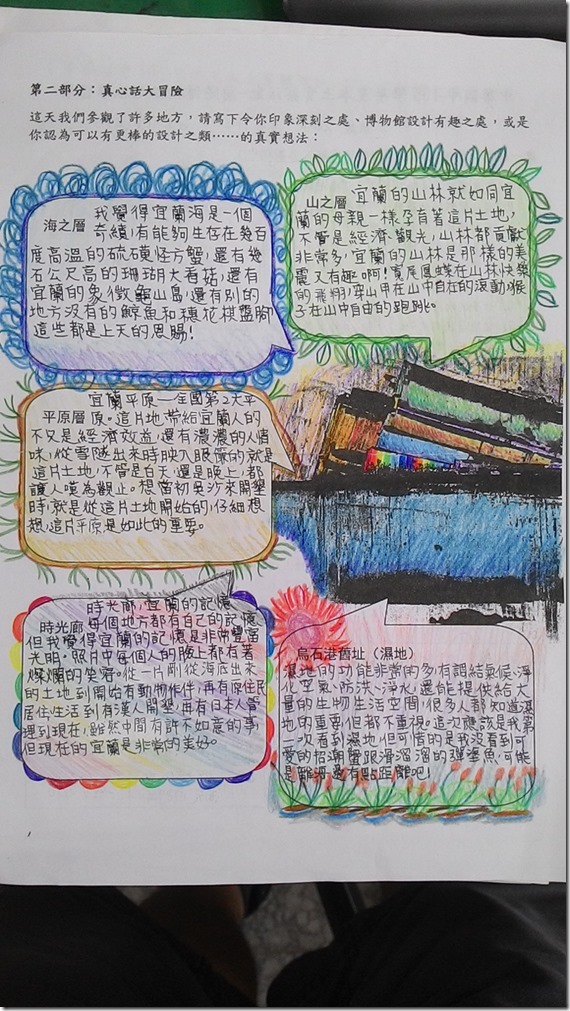 第二部分：真心話大冒險
這天我們參觀了許多地方，請寫下令你印象深刻之處、博物館設計有趣之處，或是
你認為可以有更棒的設計之類……的真實想法：
海之層
我覺得宜蘭海是一個
奇績，有能夠生存在幾百
度高溫的硫磺怪方蟹，還有幾
百公尺高的珊瑚大香菇，還有
宜蘭的象徵龜山島，還有別的
地方沒有的鯨魚和穗花棋盤腳
這些都是上天的恩賜！
山之層
宜蘭的山林就如同宜
蘭的母親一樣孕育著這片土地，
不管是經濟、觀光，山林都貢獻
非常多，宜蘭的山林是那樣的美
麗又有趣啊！寬尾鳳蝶在山林快樂
的飛翔，穿山甲在山中自在的滾動，猴
子在山中自由的跑跳。
平原層
宜蘭平原—全國第3大平
原。這片地帶給宜蘭人的
不又是經濟效益，還有濃濃的人情
味，從雪隧出來時映入眼簾的就是
這片土地，不管是白天還是晚上，都
讓人嘆為觀止。想當初吳沙來開墾
時，就是從這片土地開始的，仔細想
想，這片平原是如此的重要。
時光廊
時光廊，宜蘭的記憶
每個地方都有自己的記憶
但我覺得宜蘭的記憶是非常豐富
光明。照片中每個人的臉上都有著
燦爛的笑容。從一片剛從海底出來
的土地到開始有動物作伴，再有原住民
居住生活到有漢人開墾，再有日本人管
理到現在，雖然中間有許不如意的事
但現在的宜蘭是非常的美好。
烏石港舊址（濕地）
濕地的功能非常的多，有調結氣候、淨
化空氣、防洪、淨水，還能提供給大
量的生物生活空間，很多人都知道濕
地的重要，但都不重視。這次應該是我第
一次看到濕地，但可惜的是我沒看到可
愛的招潮蟹跟滑溜溜的彈塗魚，可能
是離洒邊有點距離吧！